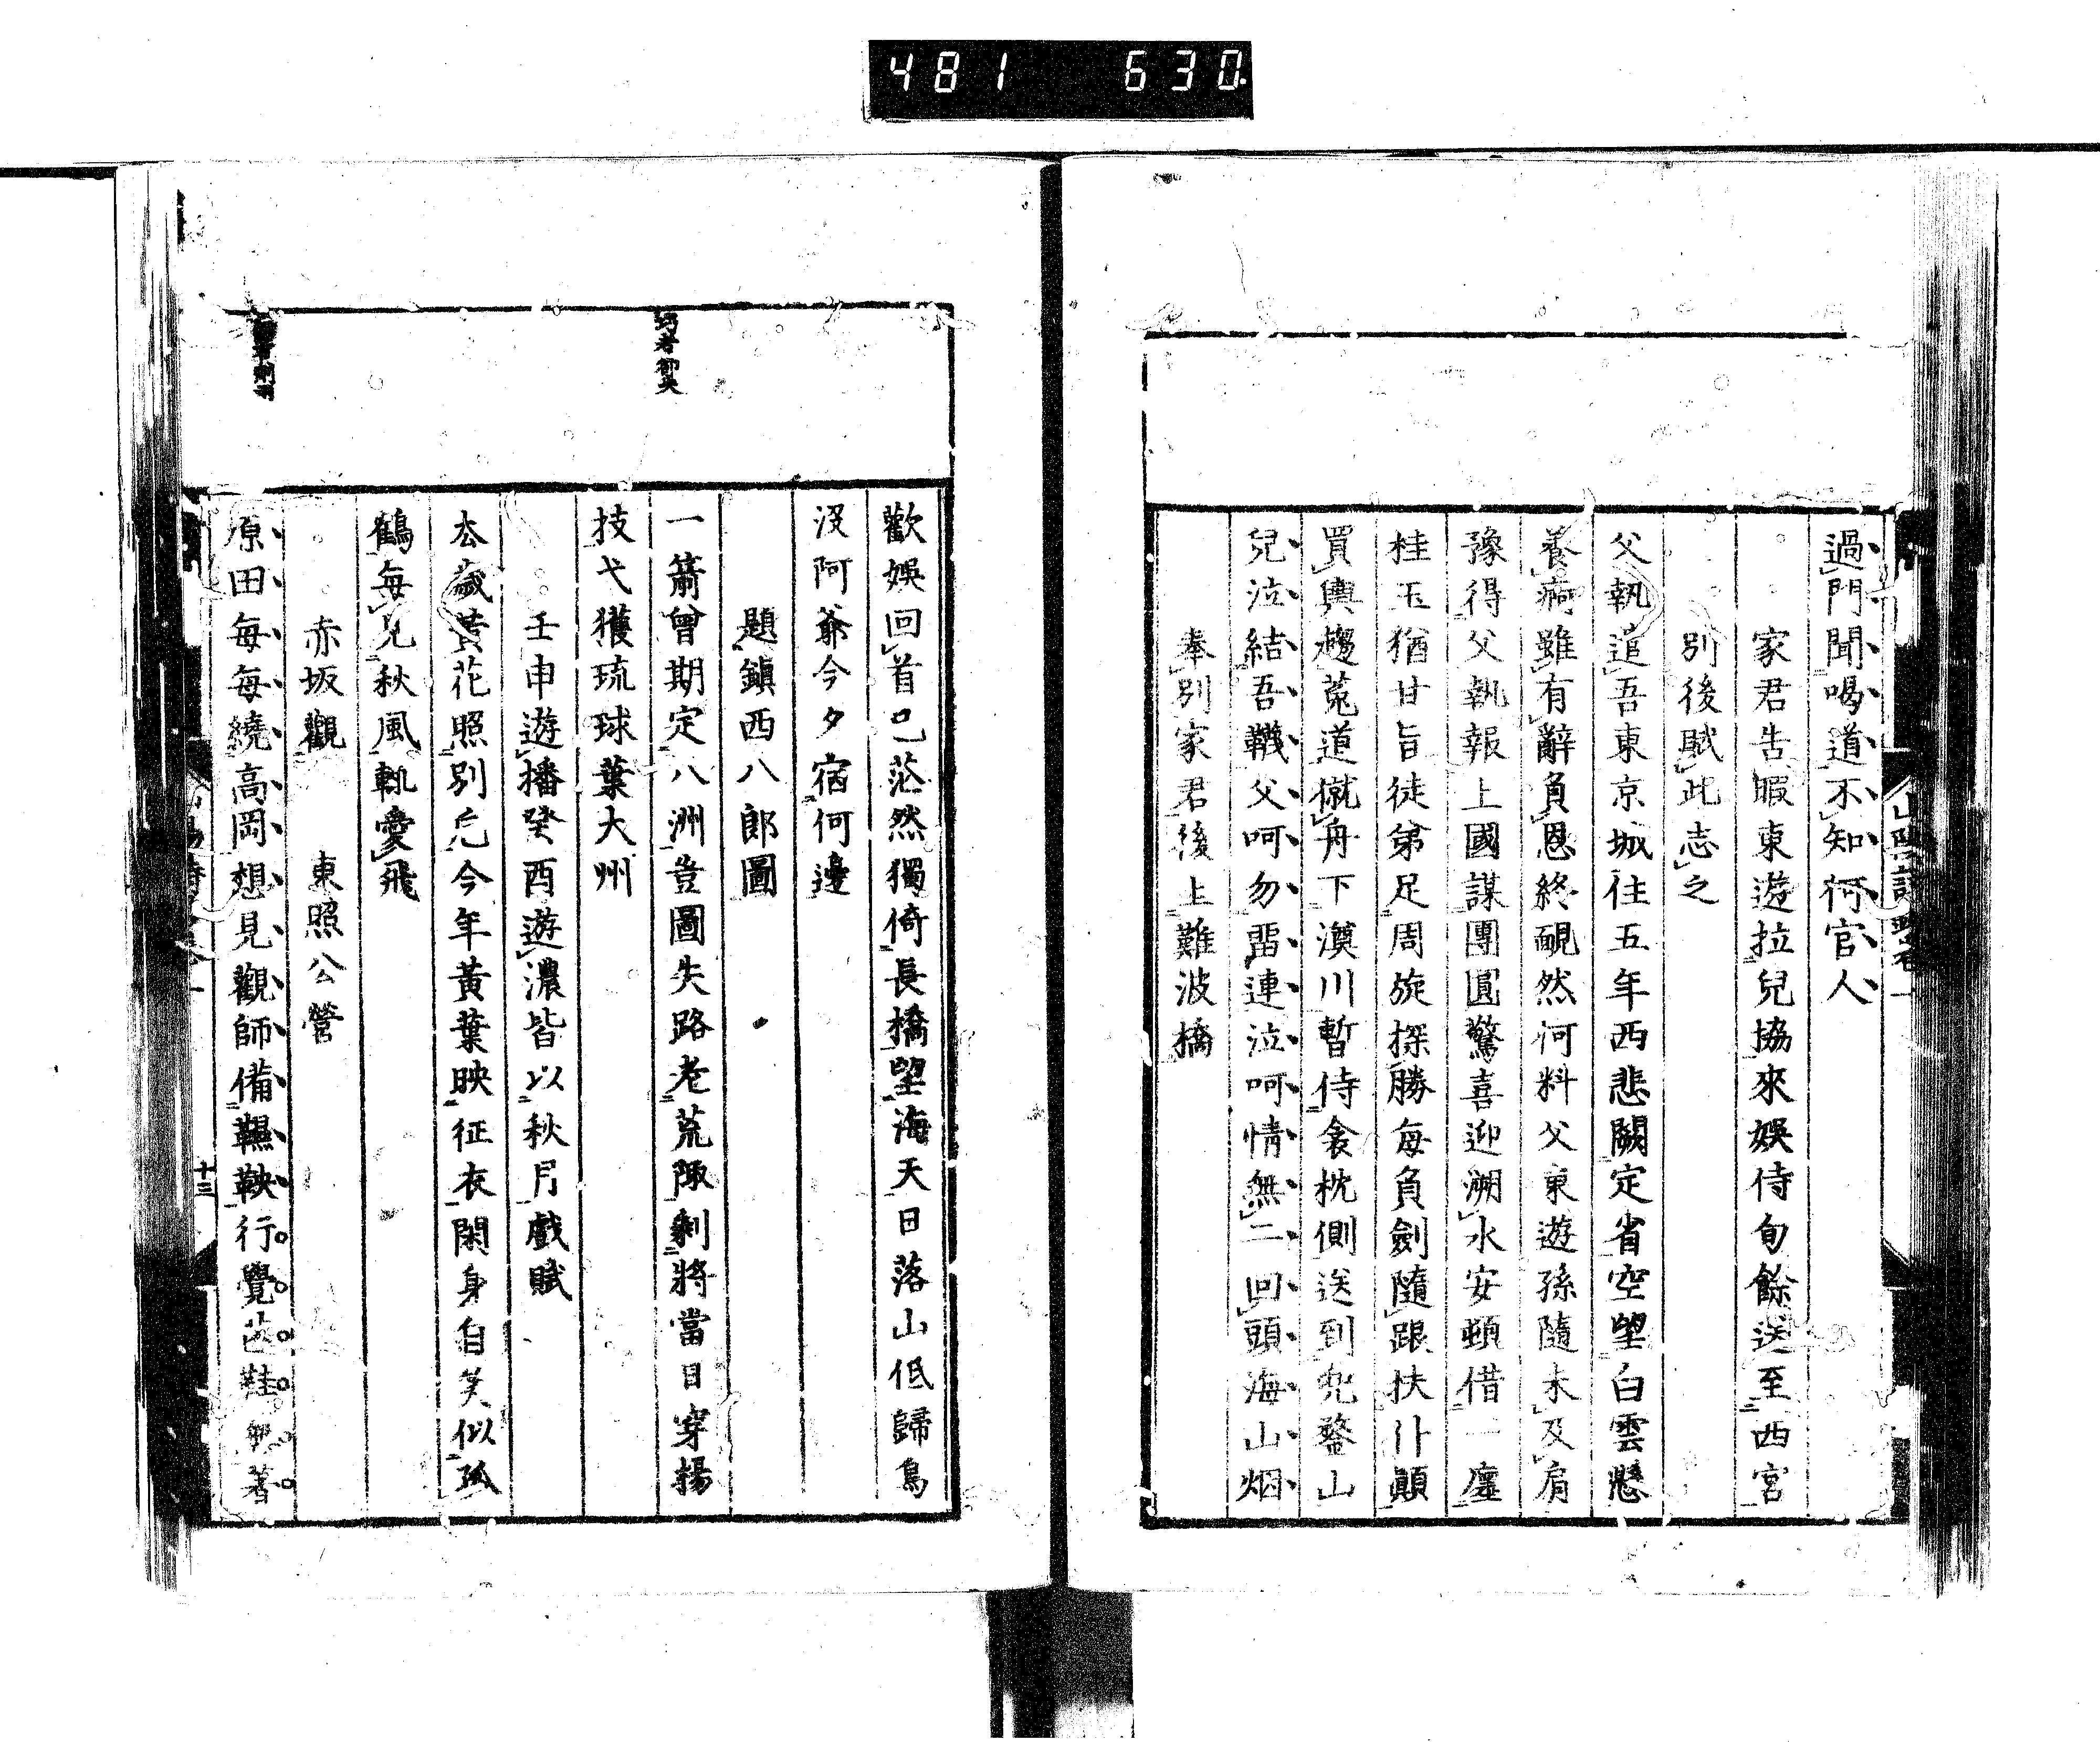 481 630
過門聞喝道不知何官人
家君告暇東遊拉兒協來娯侍旬餘送至西宮
別後賦此志之
父執追吾東京城往五年西悲闕定省空望白雲懸
養痾雖有辭負恩終靦然何料父東遊孫隨未及肩
豫得父執報上國謀團圓驚喜迎溯水安頓借一廛
桂玉猶甘旨徒第足周旋探勝每負劍隨跟扶仆顛
買輿趨菟道僦舟下澱川暫侍衾枕側送到兜鍪山
兒泣結吾韈父呵勿畱連泣呵情無二回頭海山烟
奉別家君後上難波橋
歡娯回首已茫然獨倚長橋望海天日落山低歸鳥
沒阿爺今夕宿何邊
題鎭西八郎圖
一箭曾期定八洲豈圖失路老荒陬剩將當日穿楊
技弋獲琉球葉大州
壬申遊播癸酉遊濃皆以秋月戲賦
去歲黃花照別卮今年黃葉映征衣閑身自笑似孤
鶴每見秋風輒愛飛
赤坂觀 東照公營
原田每每繞高岡想見觀師備韅鞅行覺芒鞋
著
十三